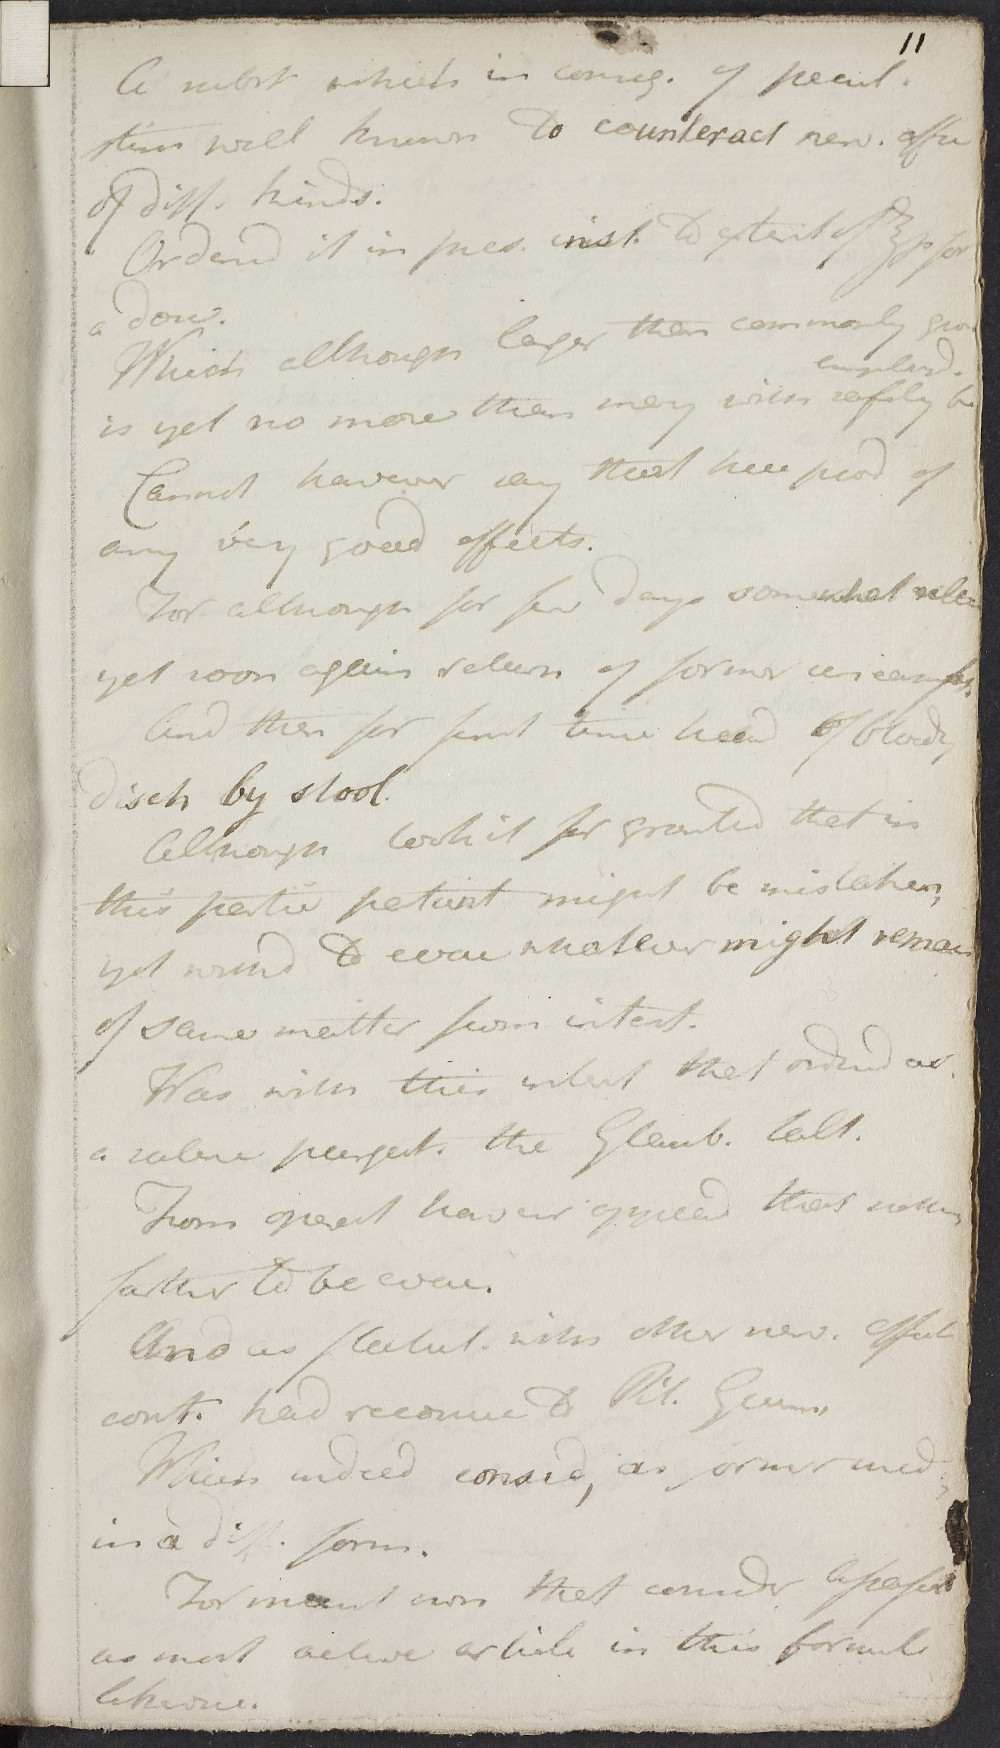 11
A subst which in conseq. of pecul.
stim well known to counteract nerv. affec
of diff. kinds.
Ordered it in pres. inst. to extent of ʒß for
a dose.
Which although larger than commonly given
employed.
is yet no more than may with safety be
Cannot however say that here prod of
any very good effects.
For although for few days somewhat reliev
yet soon again return of former uneasiness.
And then for first time heard of bloody
disch by stool.
Although took it for granted that in
this partic patient might be mistaken,
yet wished to evac whatever might remain
of same matter from intest.
Was with this intent that ordered as
a saline purgat. the Glaub. Salt.
From operat however appeared that nothing
farther to be evac.
And as flatul. with other nerv. affect
cont. had recourse to Pil. Gumm.
Which indeed consid, as former med,
in a diff. form.
For need not say that consider Asafoet
as most active article in this formula
likewise.